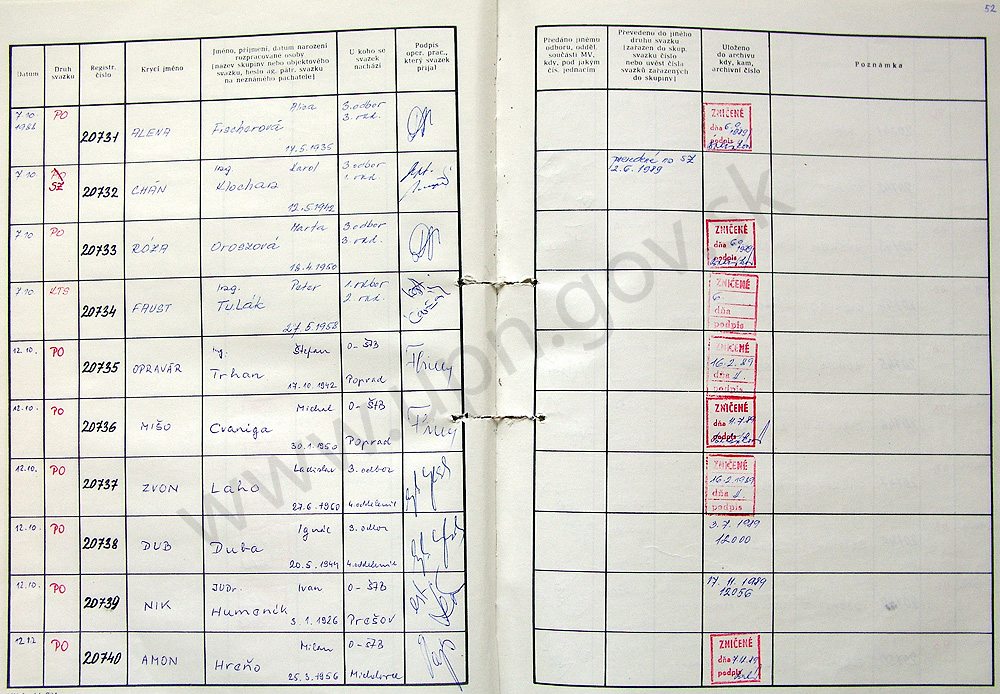 52
Datum
Druh svazku
Registr. číslo
Krycí jméno
Jméno, příjmení, datum narození
rozpracované osoby
(název skupiny nebo objektového
svazku, heslo ag. pátr. svazku
na neznámého pachatele)
U koho se
svazek
nachází
Podpis
oper. prac.,
který svazek
přijal
Předáno jinému
odboru, odděl.
součásti MV,
kdy, pod jakým
čís. jednacím
Prevedeno do jiného
druhu svazku
(zařazen do skup.
svazku číslo
nebo uvést čísla
svazků zařazených
do skupiny)
Uloženo
do archivu
kdy, kam,
archivní číslo
Poznámka
7.10. 1988 PO 20731 ALENA Fischerová 17.5.1935 3. odbor
ZNIČENÉ
dňa
podpis
7.10 SZ 20732 CHÁN Ing. Karol Klochan 12.5.1942 3. odbor 1. odd.
prevedené na SZ
2.6.1989
7.10 PO 20733 RÓZA Marta Oroszová 18.4.1950 3. odbor
ZNIČENÉ
dňa
podpis
7.10 KTS 20734 FAUST Ing. Peter Tulák 27.5.1958 1. odbor
ZNIČENÉ
dňa
podpis
12.10. PO 20735 OPRAVÁR Ing. Štefan Trhan 17.10.1942 O-ŠTB Poprad
ZNIČENÉ
16.2.89
dňa
podpis
12.10. PO 20736 MIŠO Michal Cvaniga 30.1.1950 O-ŠTB Poprad
ZNIČENÉ
dňa 11.7.89
podpis
12.10. PO 20737 ZVON Ladislav Laho 27.6.1960 3. odbor 4. oddelenie
ZNIČENÉ
16.2.1989
dňa
podpis
12.10. PO 20738 DUB Ignác Duba 20.5.1944 3. odbor 4. oddelenie
3.7.1989
12000
12.10. PO 20739 NIK JUDr. Ivan Humeník 3.1.1926 O-ŠTB Prešov
17.11.1989
12056
12.12 PO 20740 AMON Milan Hreňo 25.3.1956 O-ŠTB Michalovce
ZNIČENÉ
dňa
podpis
www.upn.gov.sk